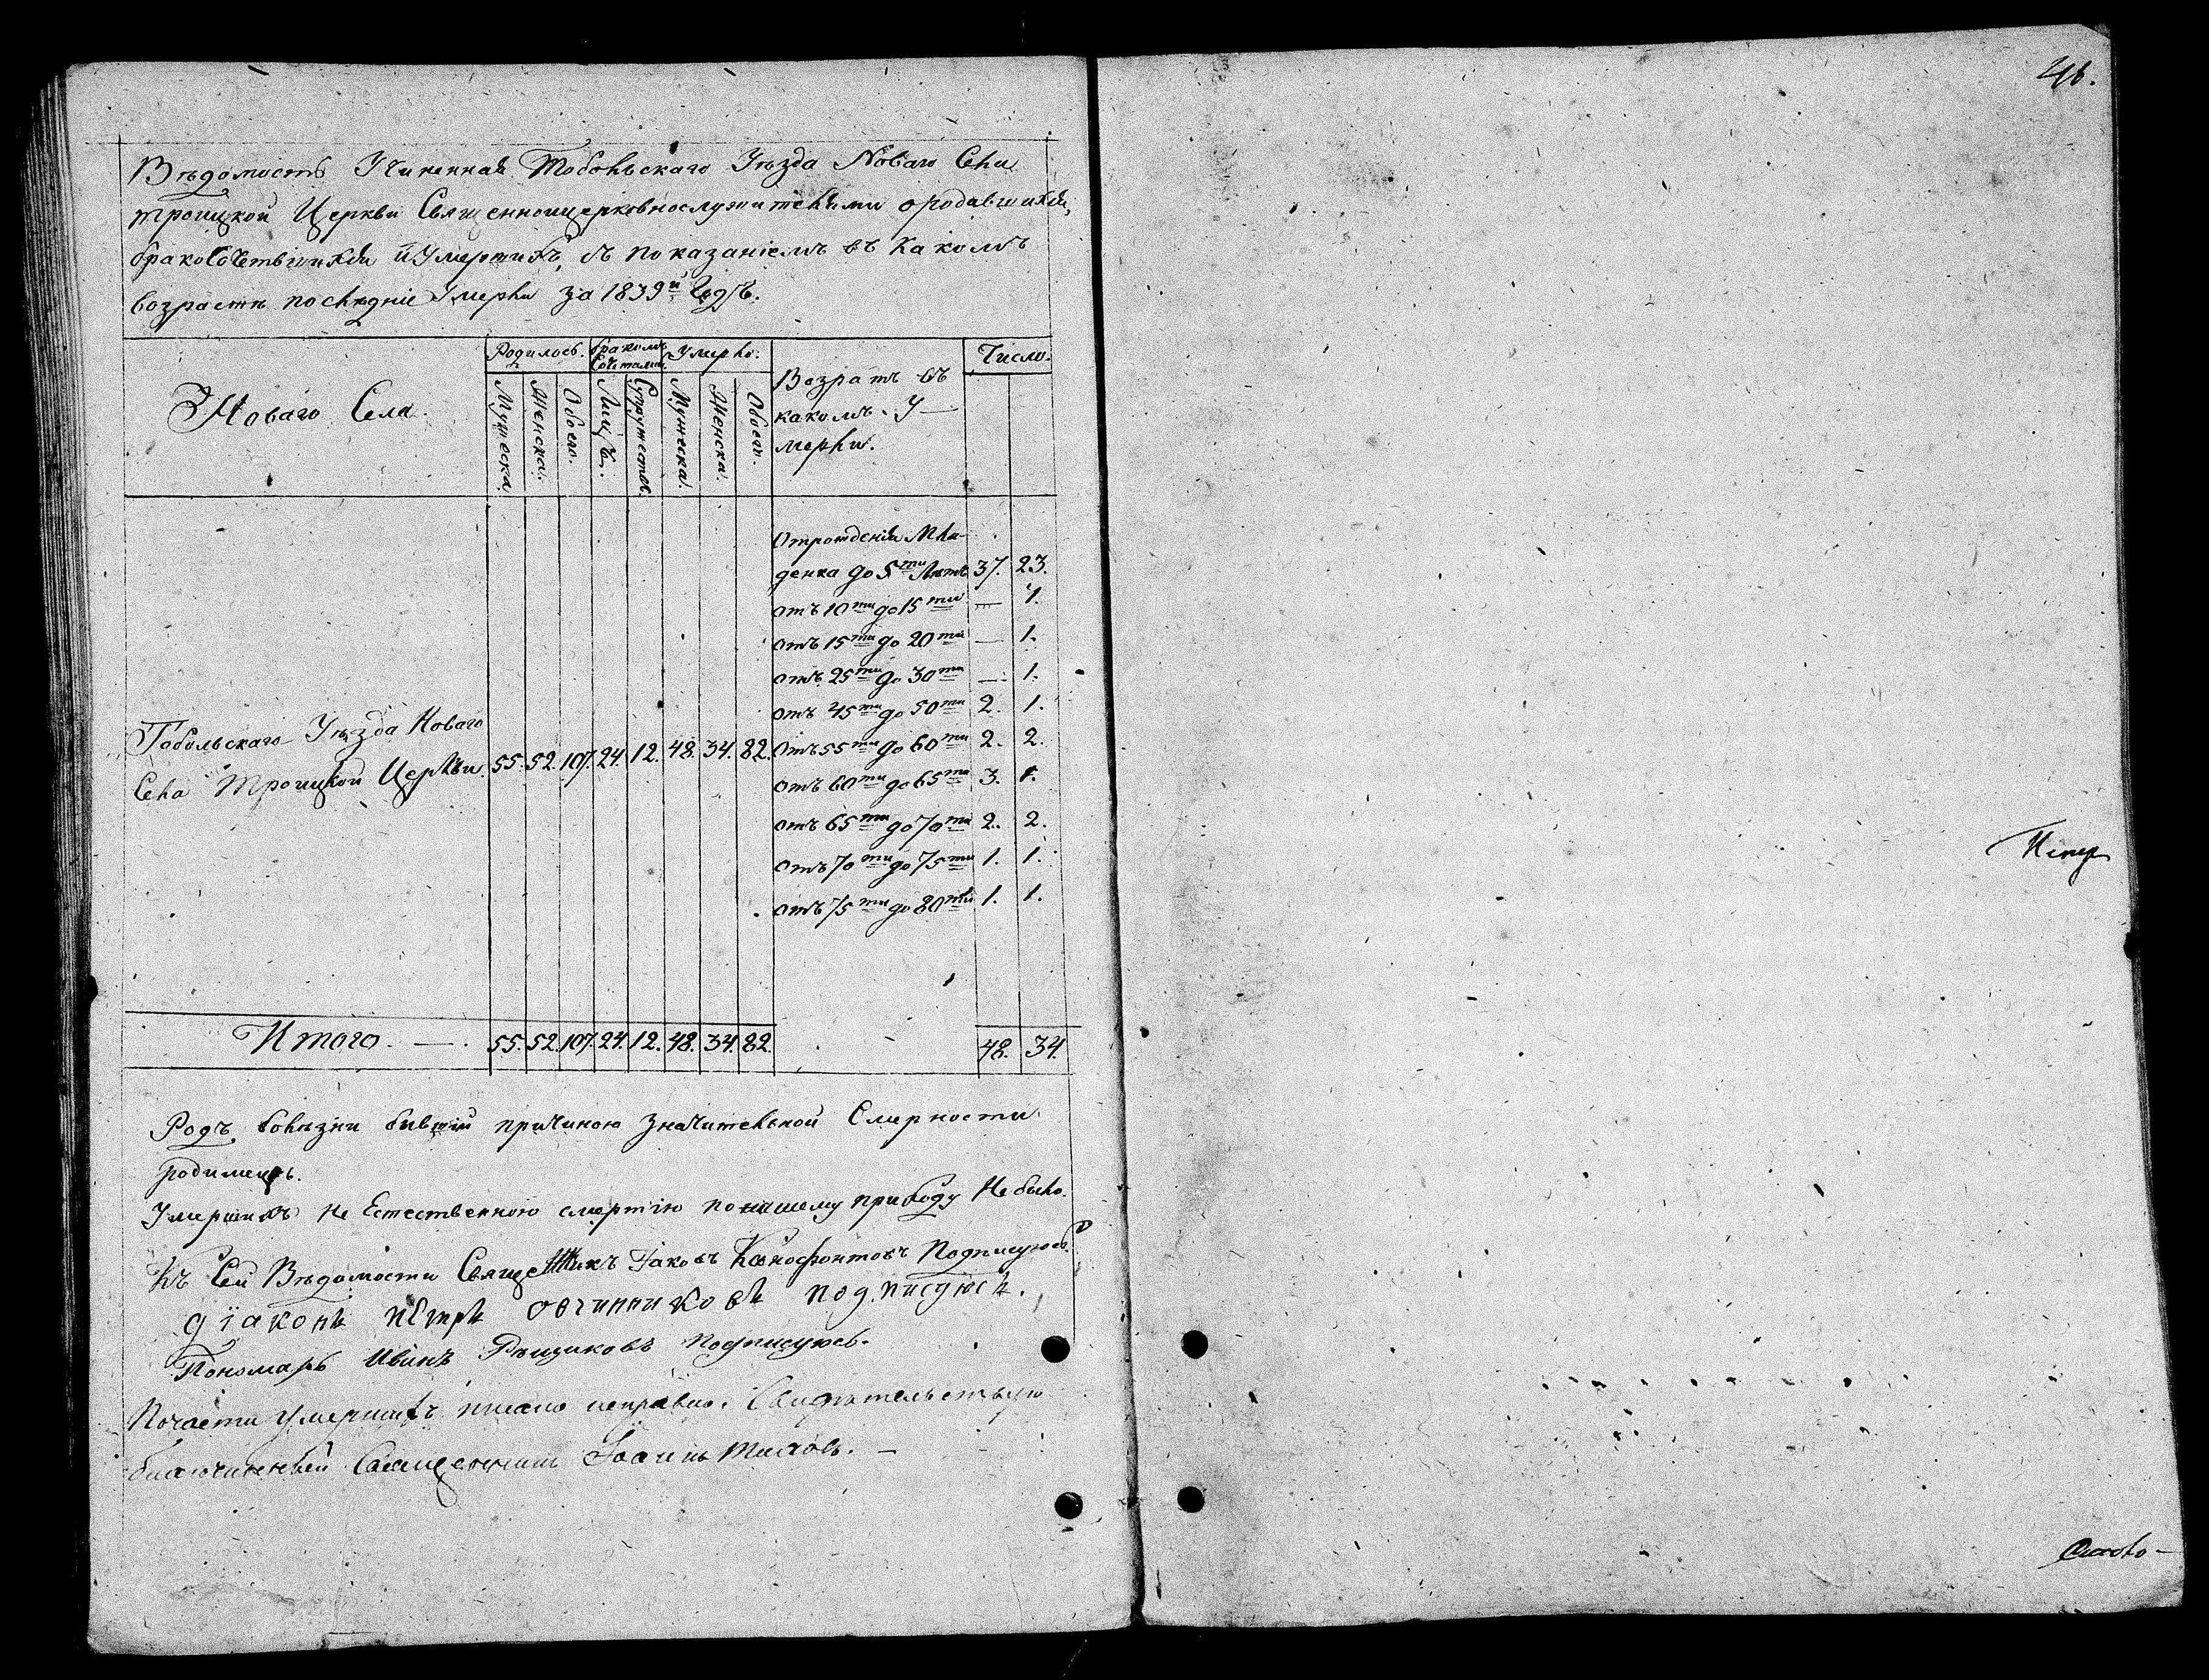 Вѣдомость Учиненная Тобольскаго Уѣзда Новаго Села
троицкой Церкви Священноицерковнослужителями ородавшихся,
бракосочетавшихся и Умершихъ, съ показаніемъ въ какомъ
возрастѣ послѣдніе Умерли за 1839й Годъ.
Новаго Села.
Родилось. бракомъ Сочетались. Умерло.
Возратъ въ
какомъ У-
мерли.
Число.
Мужеска.
Женска.
Обоего.
Лицъ.
Супружествъ.
Мужеска.
Женска.
Обоего.
Отрожденія Мла-
денка до 5ти Лѣтъ 37. 23.
отъ 10ти до 15ти — 1.
отъ 15ти до 20ти — 1.
отъ 25ти до 30ти — 1.
отъ 45ти до 50ти 2. 1.
Отъ 55ти до 60ти 2. 2.
отъ 60ти до 65ти 3. 1.
отъ 65ти до 70ти 2. 2.
отъ 70ти до 75ти 1. 1.
отъ 75ти до 80ти 1. 1.
Тобольскаго Уѣзда Новаго
Села Троицкой Церкви. 55. 52. 107. 24. 12. 48. 34. 82.
Итого. — 55. 52. 107. 24. 12. 48. 34. 82. 48. 34.
Родъ болѣзни бывшій причиною значительной Смерности
родимецъ.
Умершихъ не Естественною смертію понашему приходу Не было.
Къ Сей Вѣдомости Священникъ Іаковъ Подписуюсь.
діаконъ петръ овчинниковъ подписуюсь.
Пономарь Иванъ Рѣщиковъ подписуюсь.
Почасти умершихъ писано исправно. Свидѣтельствую
благочинный Священникъ Іоаннъ